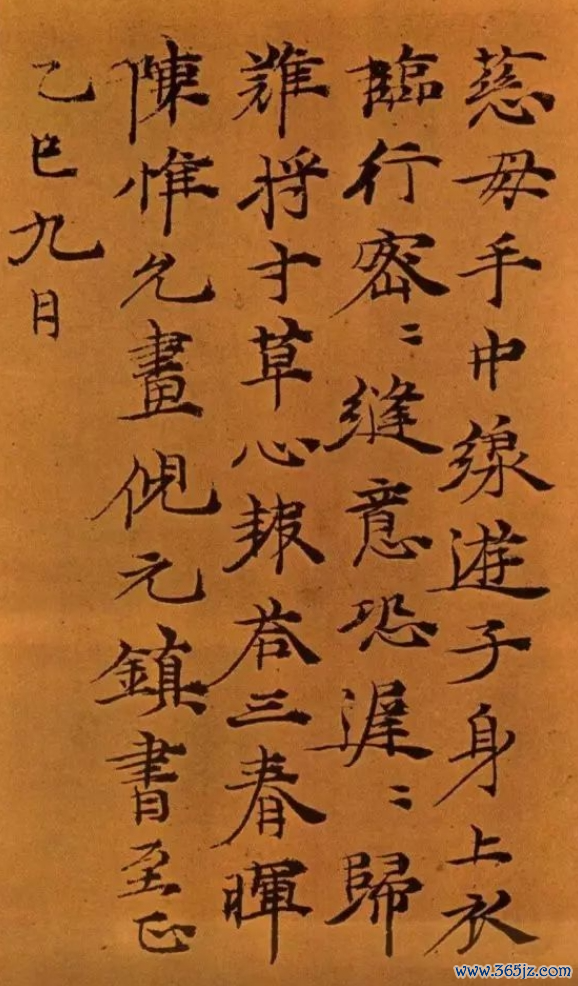 慈母手中線遊子身上衣
臨行密〻縫意恐遲〻歸
難将寸草心報荅三春暉
陳惟允畫倪元鎮書至正
乙巳九月
www.365jz.com